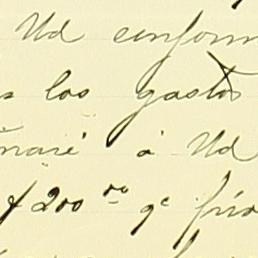 Ud conform
s los gastos
ñaré á Ud
$200.00 qe